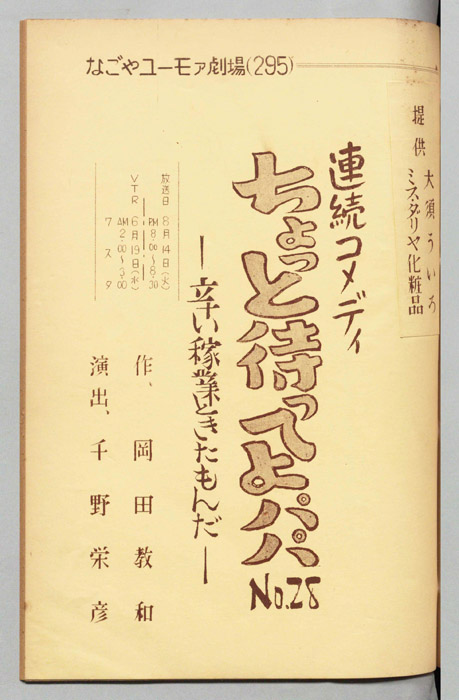 なごやユーモア劇場(295)
提供 大須ういろ
ミス・ダリヤ化粧品
連続コメディ
ちょっと待ってよパパ No.28
―辛い稼業ときたもんだ―
放送日 8月14日(火)
PM 8:00〜8:30
VTR 6月19日(水)
AM 2:00〜3:00
7スタ
作、岡田教和
演出、千野栄彦